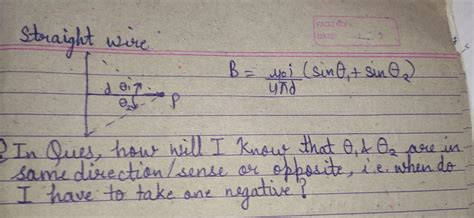 Straight wire
d θ₁
θ₂ P
B = μ₀i/4πd (sinθ₁ + sinθ₂)
? In Ques, how will I know that θ₁ & θ₂ are in
same direction/sense or opposite, i.e. when do
I have to take one negative?